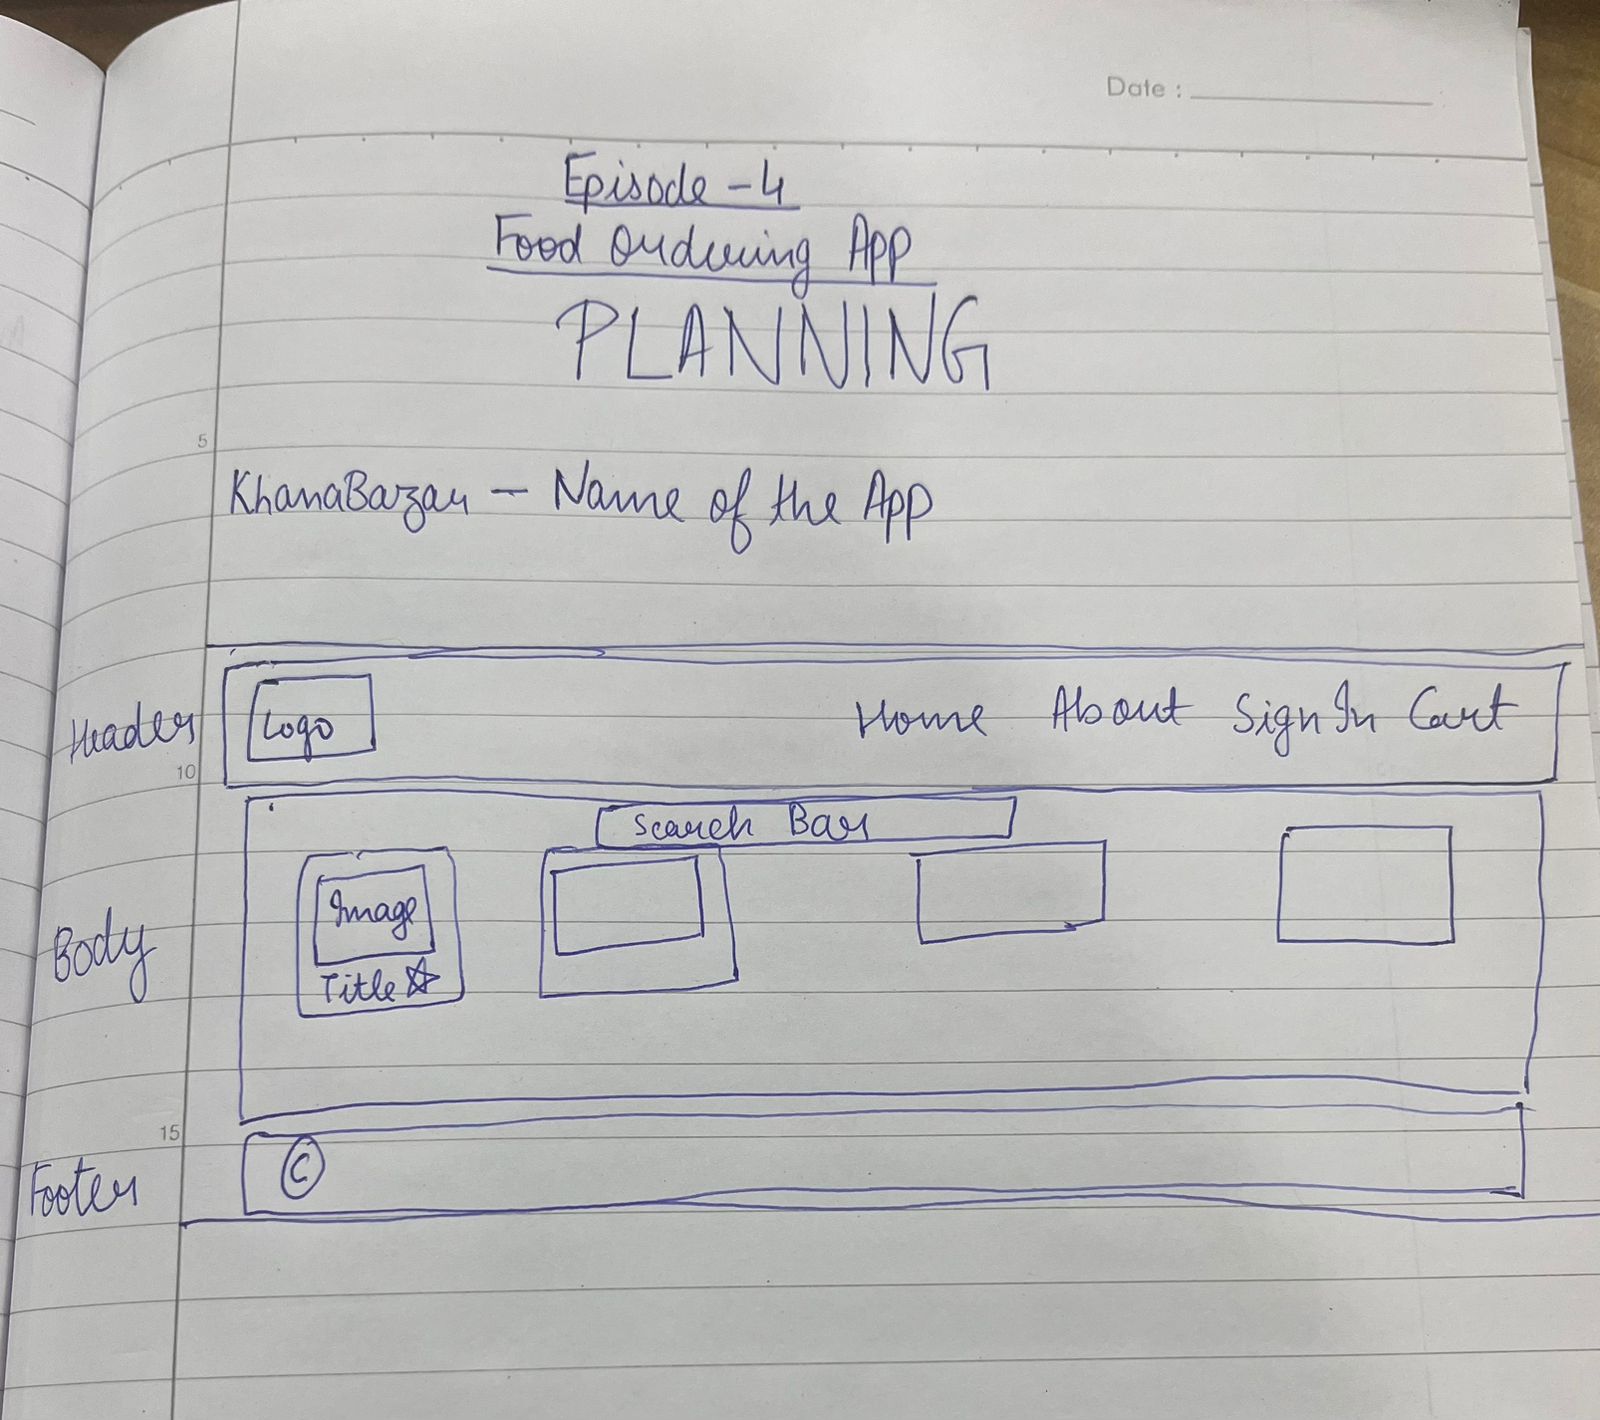 Date :
Episode - 4
Food Ordering App
PLANNING
5
KhanaBazar — Name of the App
Header
Logo
Home About Sign In Cart
10
Search Bar
Body
Image
Title ☆
15
Footer
©